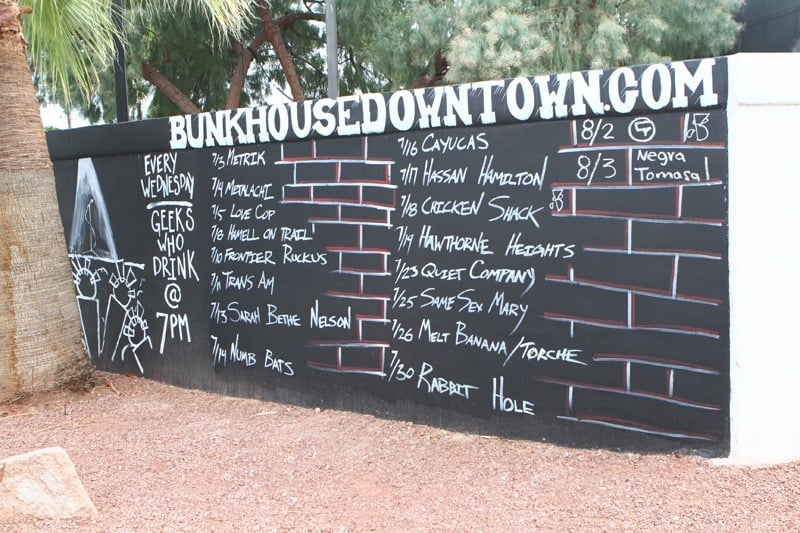 BUNKHOUSEDOWNTOWN.COM
EVERY
WEDNESDAY
GEEKS
WHO
DRINK
@
7PM
7/3 METRIK
7/4 METALACHI
7/5 LOVE COP
7/8 HAMELL ON TRAIL
7/10 FRONTIER RUCKUS
7/11 TRANS AM
7/13 SARAH BETHE NELSON
7/14 NUMB BATS
7/16 CAYUCAS
7/17 HASSAN HAMILTON
7/18 CHICKEN SHACK
7/19 HAWTHORNE HEIGHTS
7/23 QUIET COMPANY
7/25 SAME SEX MARY
7/26 MELT BANANA/TORCHE
7/30 RABBIT HOLE
8/2
8/3 Negra
Tomasa!